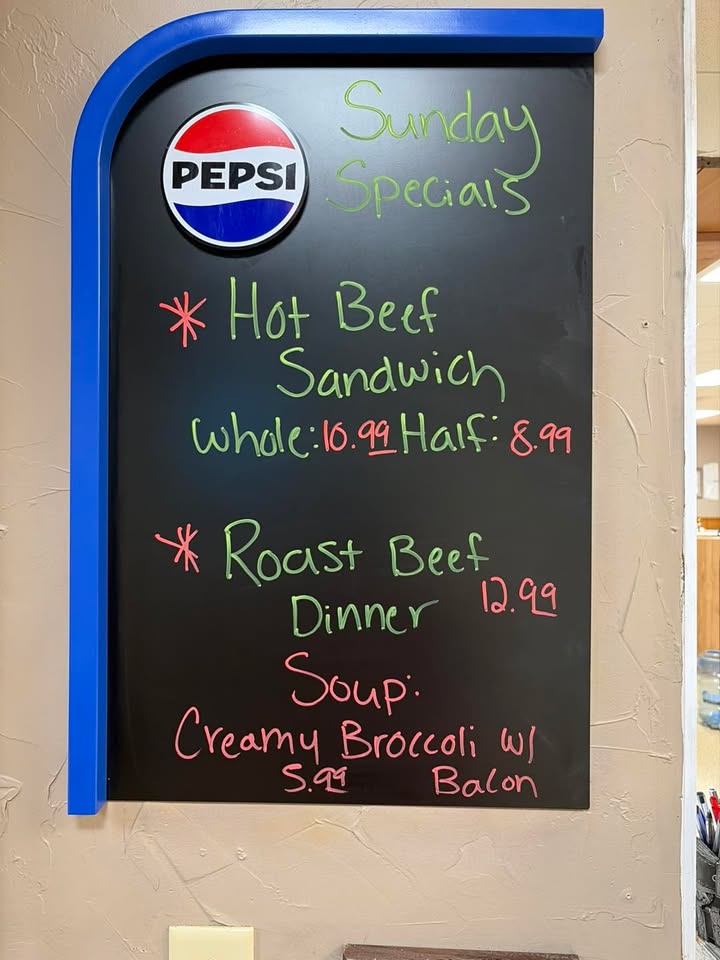 PEPSI
Sunday
Specials
* Hot Beef
Sandwich
Whole: 10.99 Half: 8.99
* Roast Beef
Dinner 12.99
Soup:
Creamy Broccoli w/
5.99 Bacon